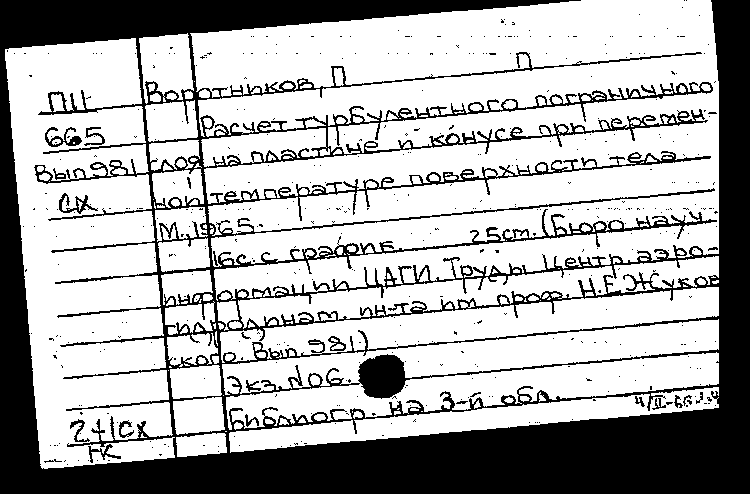 П11 Воротников, П П
665 Расчет турбулентного пограничного
Вып 981 слоя на пластине и конусе при перемен-
СХ. ной температуре поверхности тела.
М., 1965.
16с. с график. 25см. (Бюро науч.
информации ЦАГИ. Труды Центр. аэро-
гидродинам. ин-та им. проф. Н.Е. Жуков
ского. Вып. 981.)
Экз. №06.
Библиогр. на 3-й обл.
24/СХ